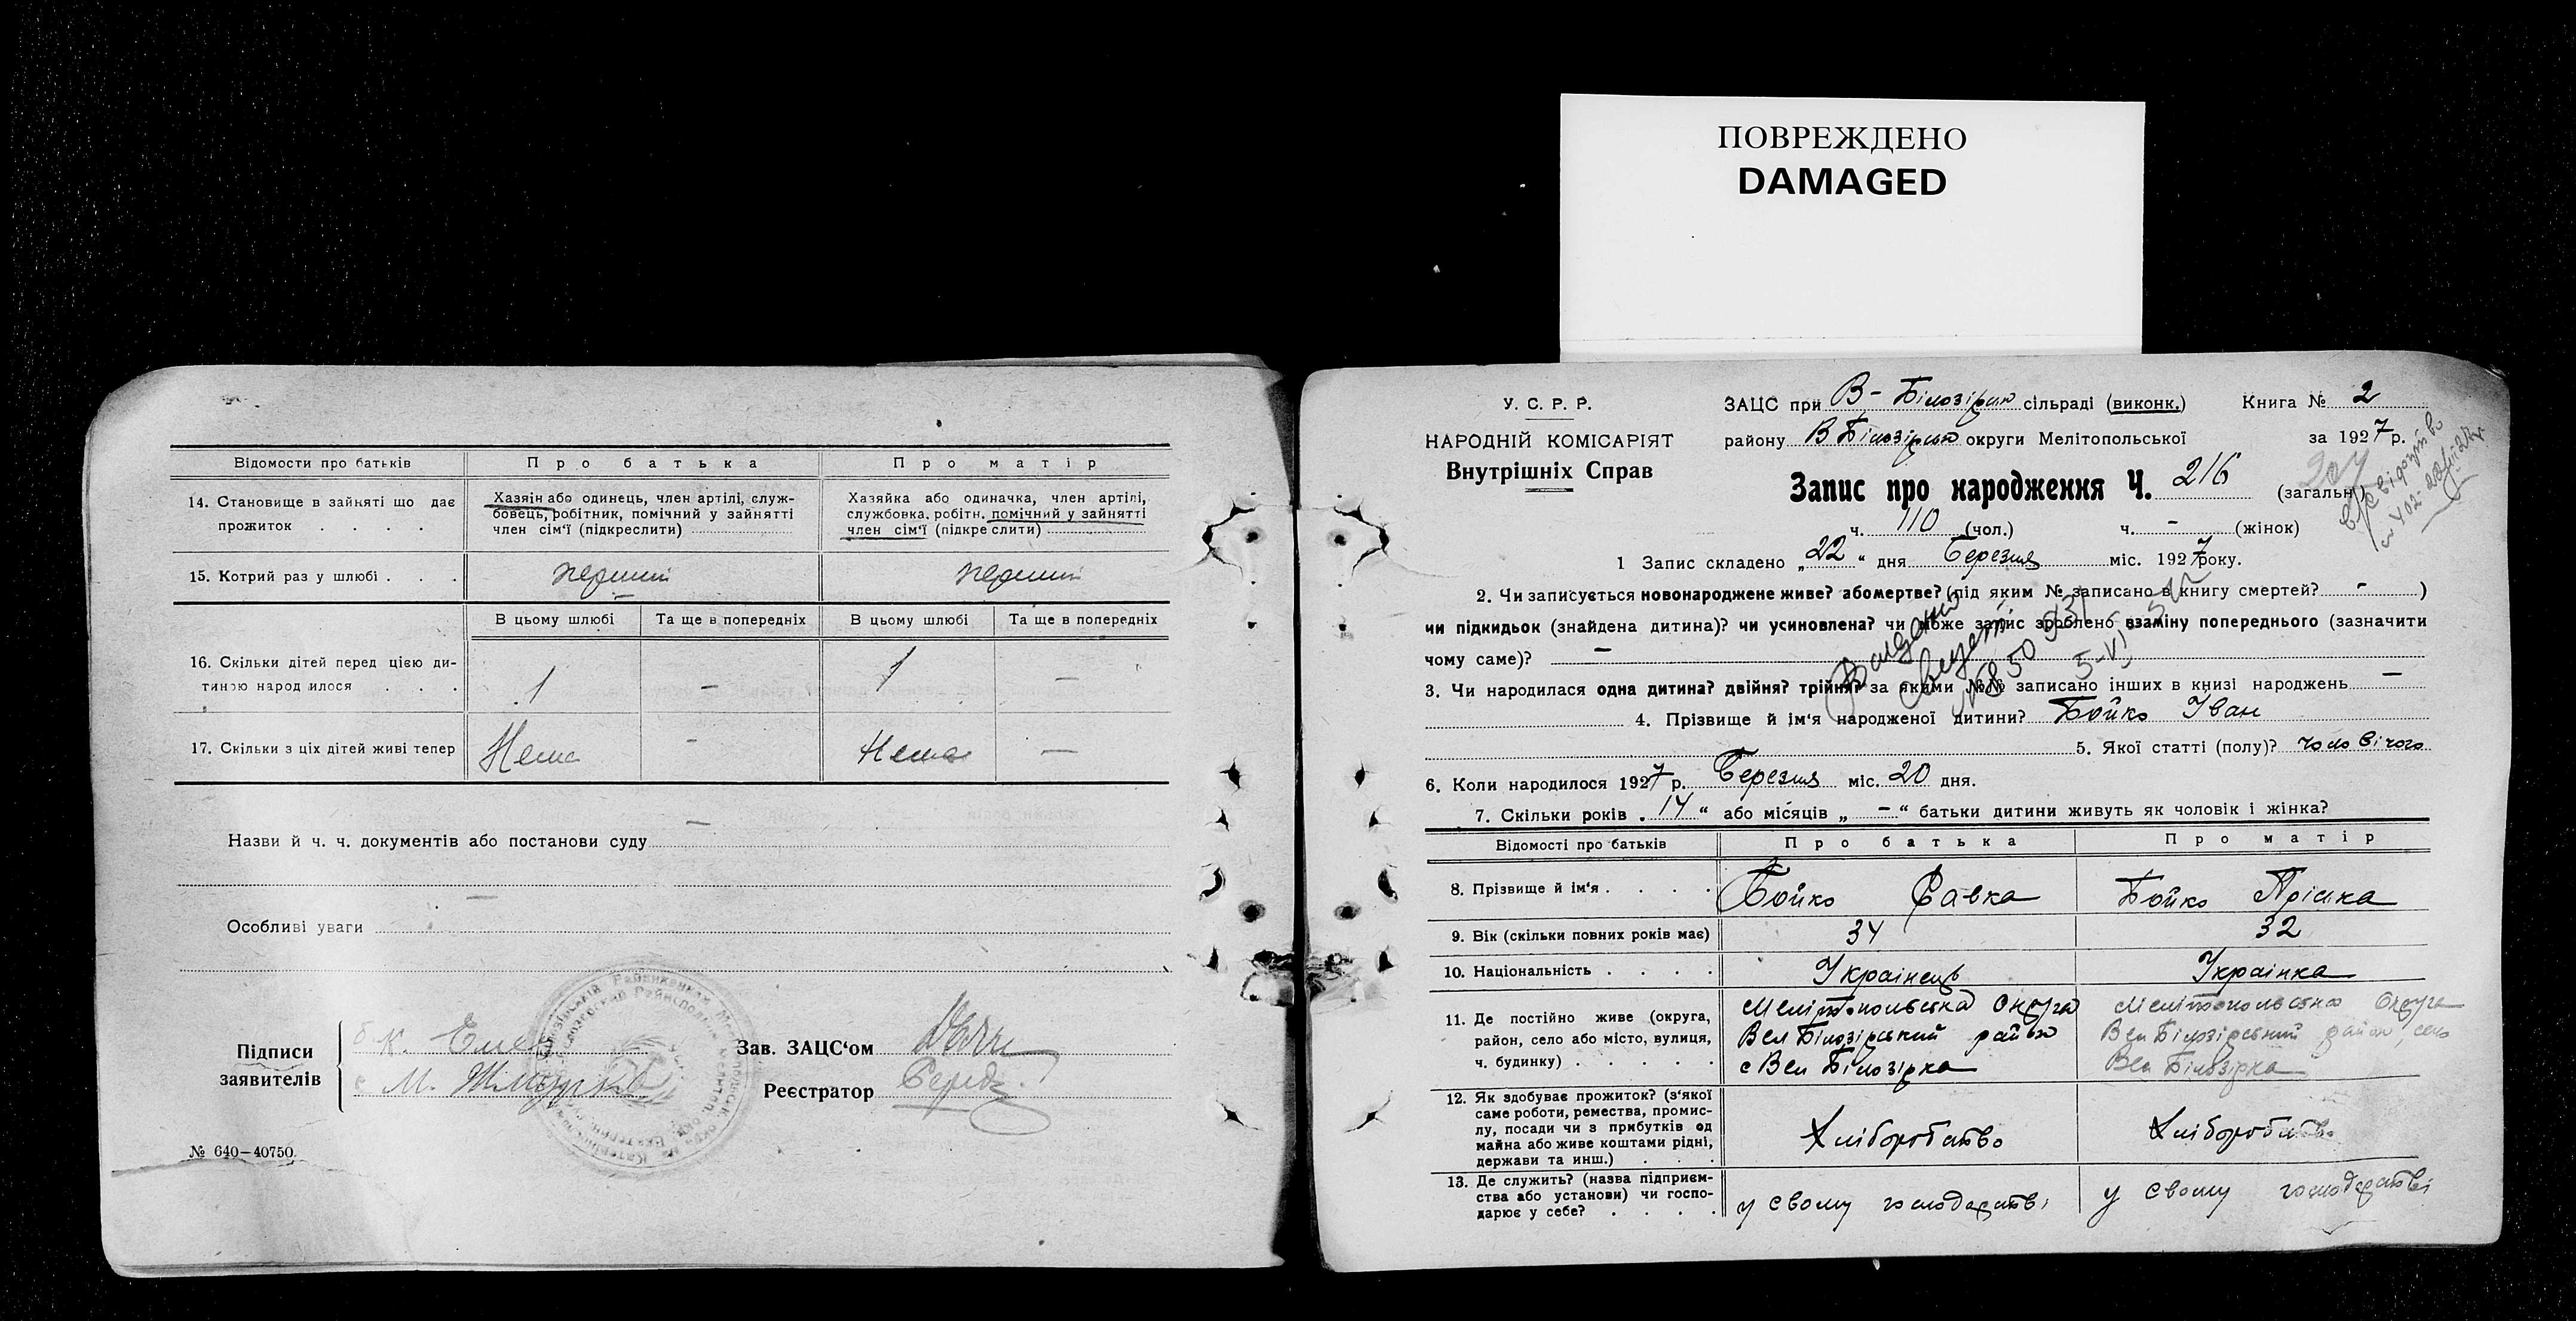 ПОВРЕЖДЕНО
DAMAGED
Відомости про батьків
Про батька
Про матір
14. Становище в зайняті що дає прожиток . . . .
Хазяїн або одинець, член артілі, служ-
бовець, робітник, помічний у зайнятті
член сім'ї (підкреслити)
Хазяйка або одиначка, член артілі,
службовка, робітн. помічний у зайнятті
член сім'ї (підкреслити)
15. Котрий раз у шлюбі . . .
перший
перший
В цьому шлюбі
Та ще в попередніх
В цьому шлюбі
Та ще в попередніх
16. Скільки дітей перед цією ди-
тиною народилося . . .
1
-
1
-
17. Скільки з ціх дітей живі тепер
Нема
-
Нема
-
Назви й ч. ч. документів або постанови суду -
Особливі уваги -
Підписи
заявителів
М.
Зав. ЗАЦС'ом
Реєстратор
№ 640-40750.
У. С. Р. Р.
НАРОДНІЙ КОМІСАРІЯТ
Внутрішніх Справ
ЗАЦС при В-Білозірск сільраді (виконк.)
Книга № 2
району В Білозірськ округи Мелітопольської
за 1927 р.
Запис про народження Ч. 216 (загальн.)
207
ч. 110 (чол.) ч. - (жінок)
1 Запис складено „22" дня Березня міс. 1927 року.
2. Чи записується новонароджене живе? або мертве? (під яким № записано в книгу смертей? - )
чи підкидьок (знайдена дитина)? чи усиновлена? чи може запис зроблено взаміну попереднього (зазначити
чому саме)? -
3. Чи народилася одна дитина? двійня? трійня? за якими №№ записано інших в книзі народжень -
4. Прізвище й ім'я народженої дитини? Бойко Іван
5. Якої статті (полу)? чоловічого
6. Коли народилося 1927 р. Березня міс. 20 дня.
7. Скільки років „14" або місяців „-" батьки дитини живуть як чоловік і жінка?
Відомості про батьків
Про батька
Про матір
8. Прізвище й ім'я . . . .
Бойко Савка
Бойко Пріська
9. Вік (скільки повних років має)
34
32
10. Національність . . . .
Українець
Українка
11. Де постійно живе (округа,
район, село або місто, вулиця,
ч. будинку) . . . . .
Мелітопольська Округа
Вел Білозірський район
с Вел Білозірка
Мелітопольська Округа
Вел Білозірський район, село
Вел Білозірка
12. Як здобуває прожиток? (з'якої
саме роботи, ремества, промис-
лу, посади чи з прибутків од
майна або живе коштами рідні,
держави та инш.) . . .
Хліборобство
Хліборобство
13. Де служить? (назва підприєм-
ства або установи) чи госпо-
дарює у себе? . . . .
у свому господарстві
у свому господарстві